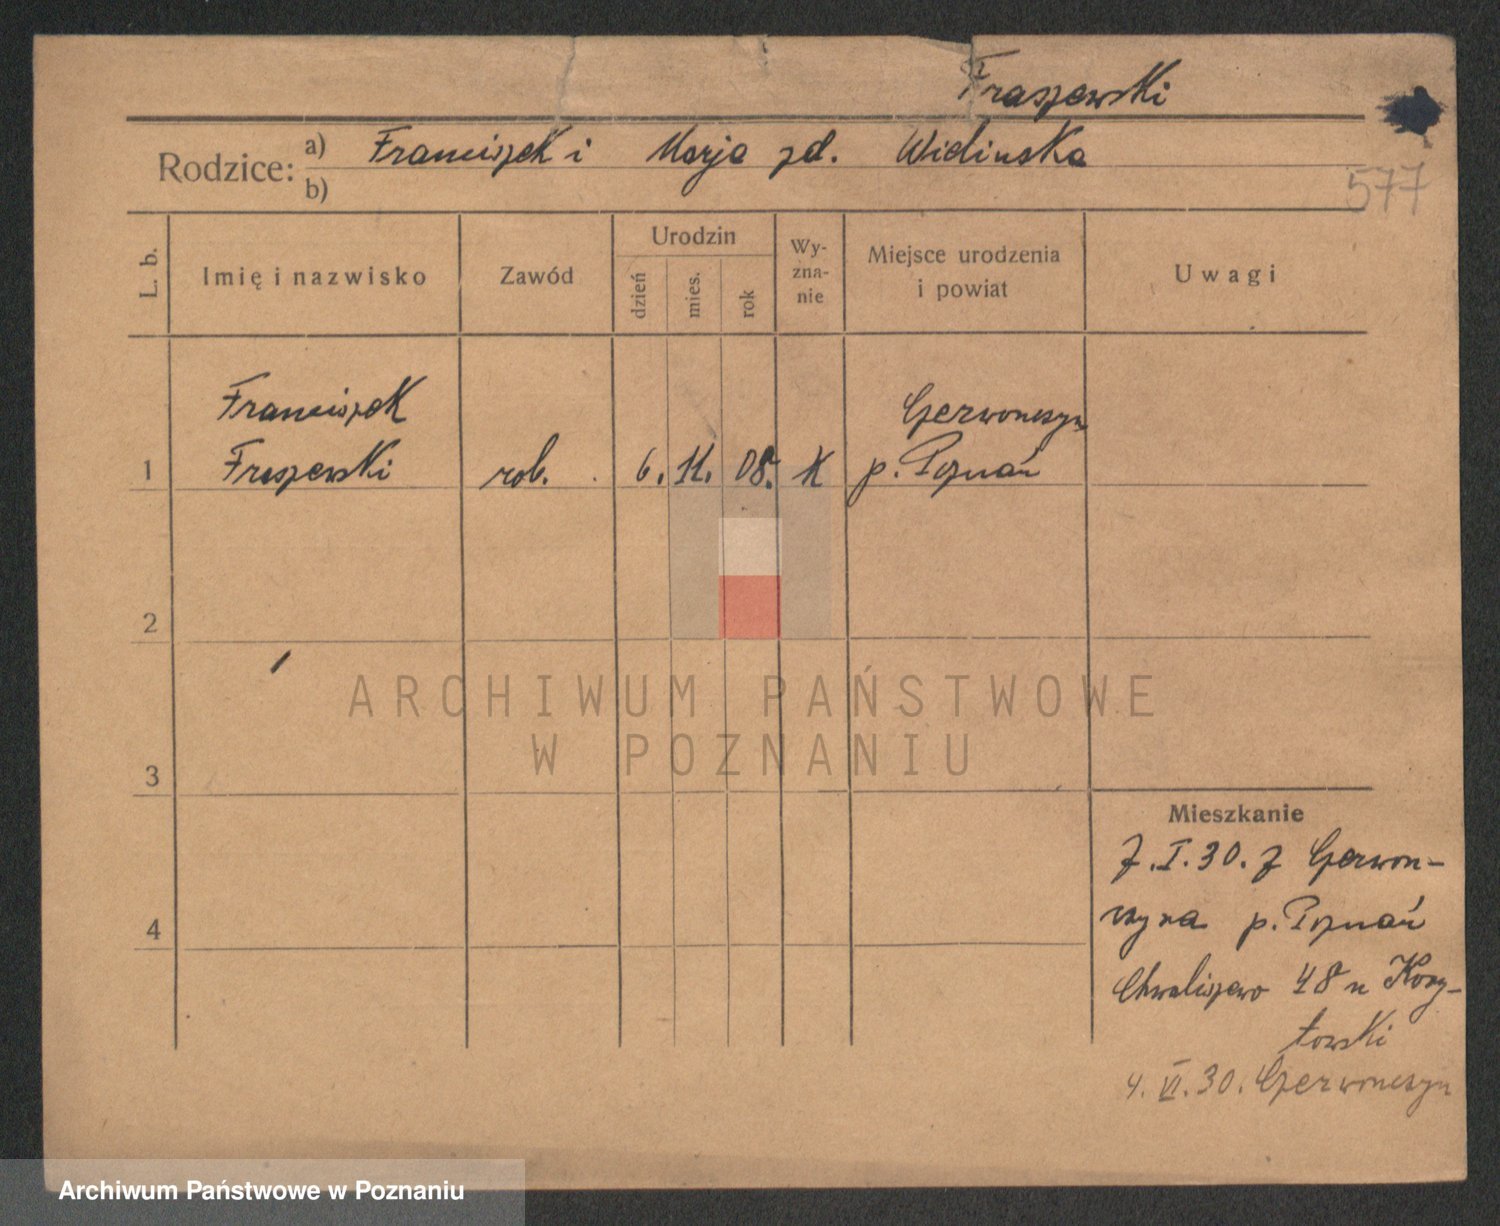 Fraszewski
Rodzice: a) Franciszek i Marja zd. Widinska
b)
577
L. b.
Imię i nazwisko
Zawód
Urodzin
dzień
mies.
rok
Wy-
zna-
nie
Miejsce urodzenia
i powiat
Uwagi
Franciszek
Czerwonczyn
1 Fraszewski rob. 6. 11. 08. K p. Poznań
2
ARCHIWUM PAŃSTWOWE
W POZNANIU
3
Mieszkanie
7.I.30. z Czerwon-
czyna p. Poznań
4
Chwaliszewo 48 u Kory-
towski
4.VI.30. Czerwonczyn
Archiwum Państwowe w Poznaniu